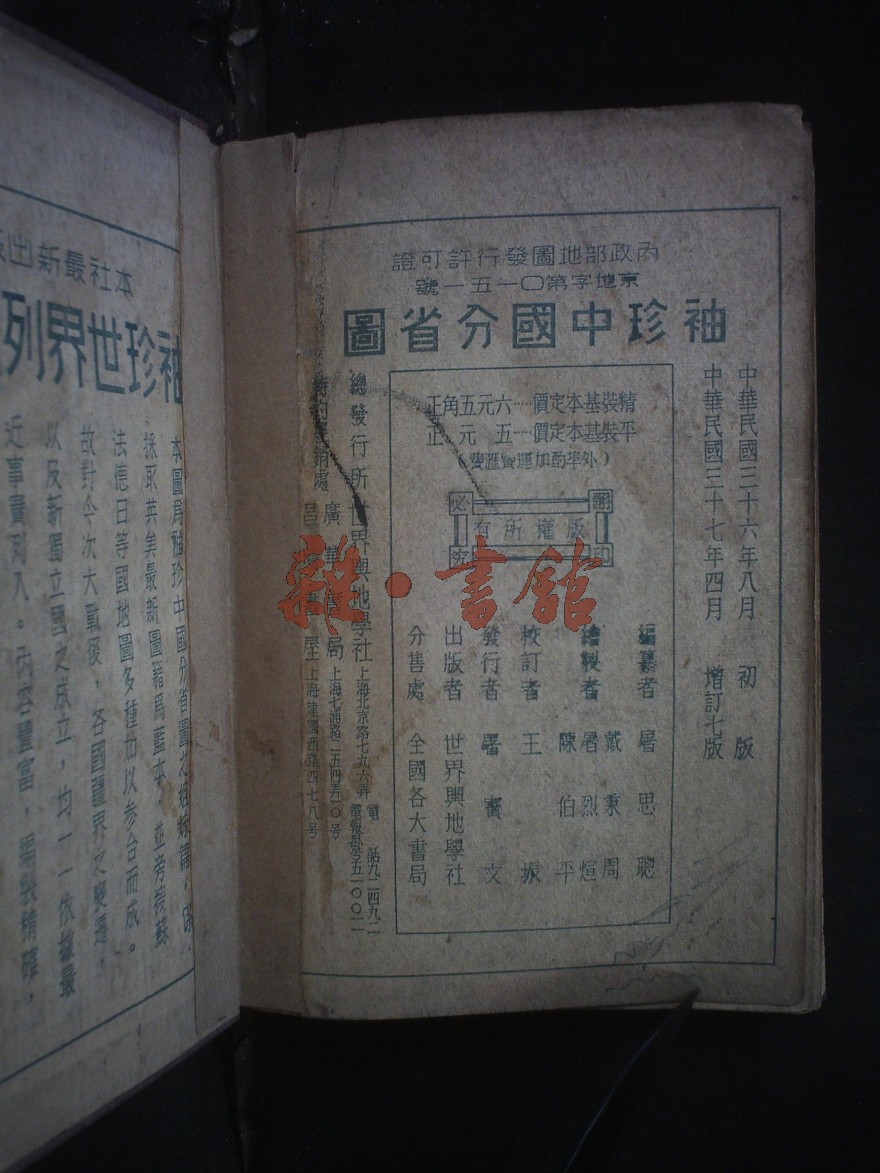 內政部地圖發行許可證
京地字第〇一五一號
袖珍中國分省圖
中華民國三十六年八月 初版
中華民國三十七年四月 增訂七版
精裝基本定價……六元五角正
平裝基本定價……五元正
(外埠酌加運寶滙費)
版權所有
翻印必究
編纂者 屠思聰
繪製者 戴秉周 屠烈煊 陳伯平
校訂者 王振
發行者 屠 文
出版者 世界輿地學社
分售處 全國各大書局
總發行所 世界輿地學社 上海北京路七九六弄
電話九二四九二
電報掛號五一〇〇二一
特約經銷處 廣華書局 上海七浦路二五四弄一〇号
書屋 上海建國西路四七八号
雜·書館
本社最新出
袖珍世界列
本圖爲袖珍中國分省圖之姐妹篇,
採取英美最新圖籍爲藍本,並旁搜蘇
法德日等國地圖多種茄以参合而成。
故對今次大戰後,各國疆界之變遷,
以及新獨立國之成立,均一一依據最
近事實列入。內容豐富,編製精確,